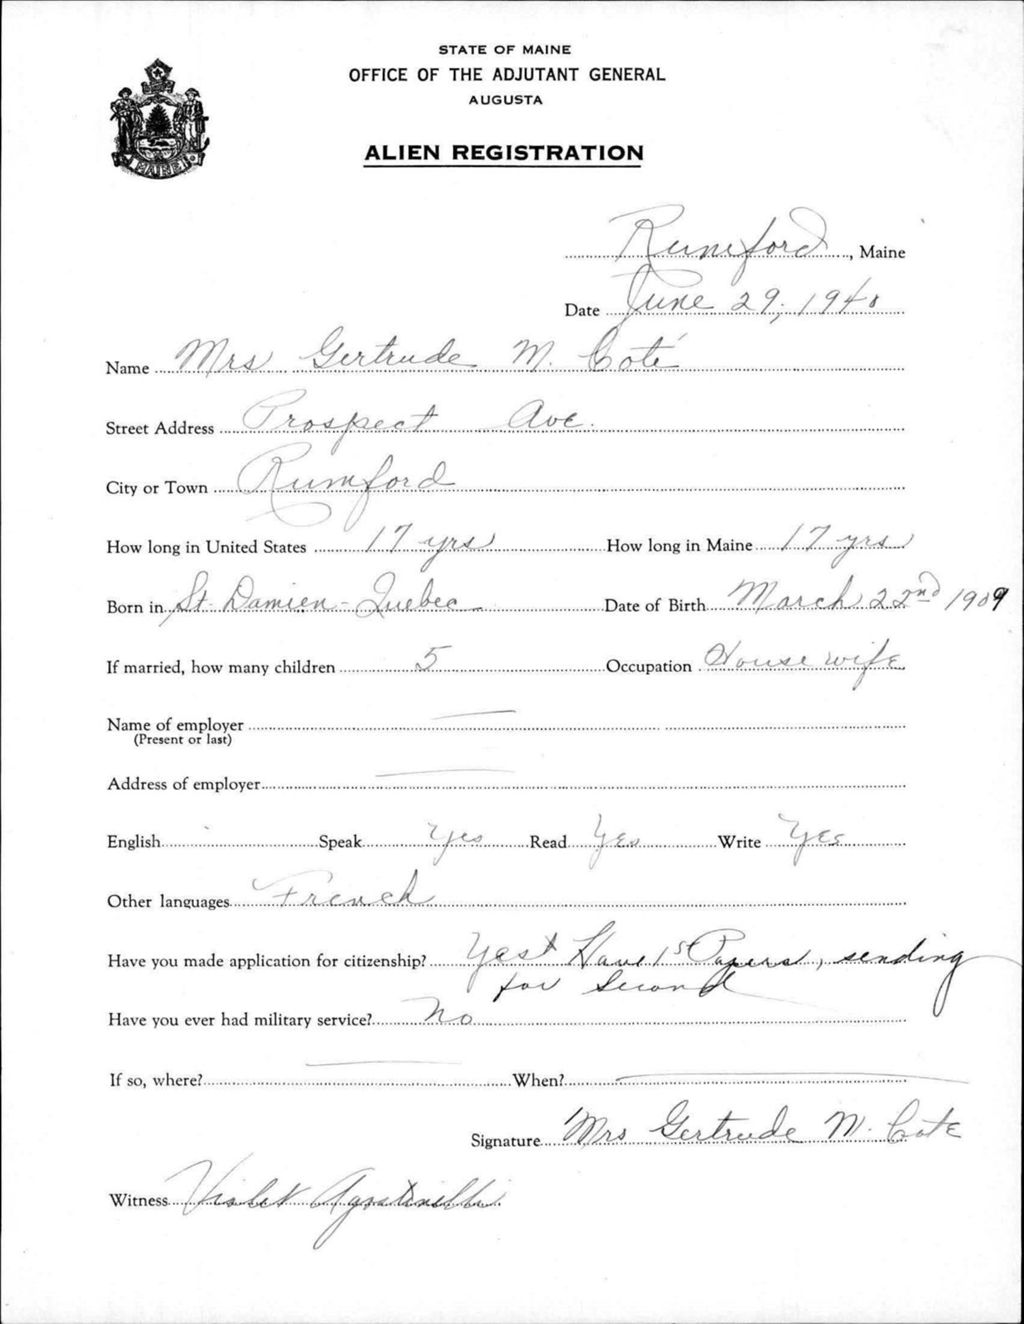 STATE OF MAINE
OFFICE OF THE ADJUTANT GENERAL
AUGUSTA
ALIEN REGISTRATION
Rumford, Maine
Date June 29, 1940
Name Mrs Gertrude M. Coté
Street Address Prospect Ave.
City or Town Rumford
How long in United States 17 yrs How long in Maine 17 yrs
Born in St. Damien - Quebec Date of Birth March 22nd 1909
If married, how many children 5 Occupation House wife
Name of employer
(Present or last)
Address of employer
English Speak Yes Read Yes Write Yes
Other languages French
Have you made application for citizenship? Yes Have 1st Papers, sending
for Second
Have you ever had military service? No
If so, where? When?
Signature Mrs Gertrude M. Cote
Witness Violet Agostinelli